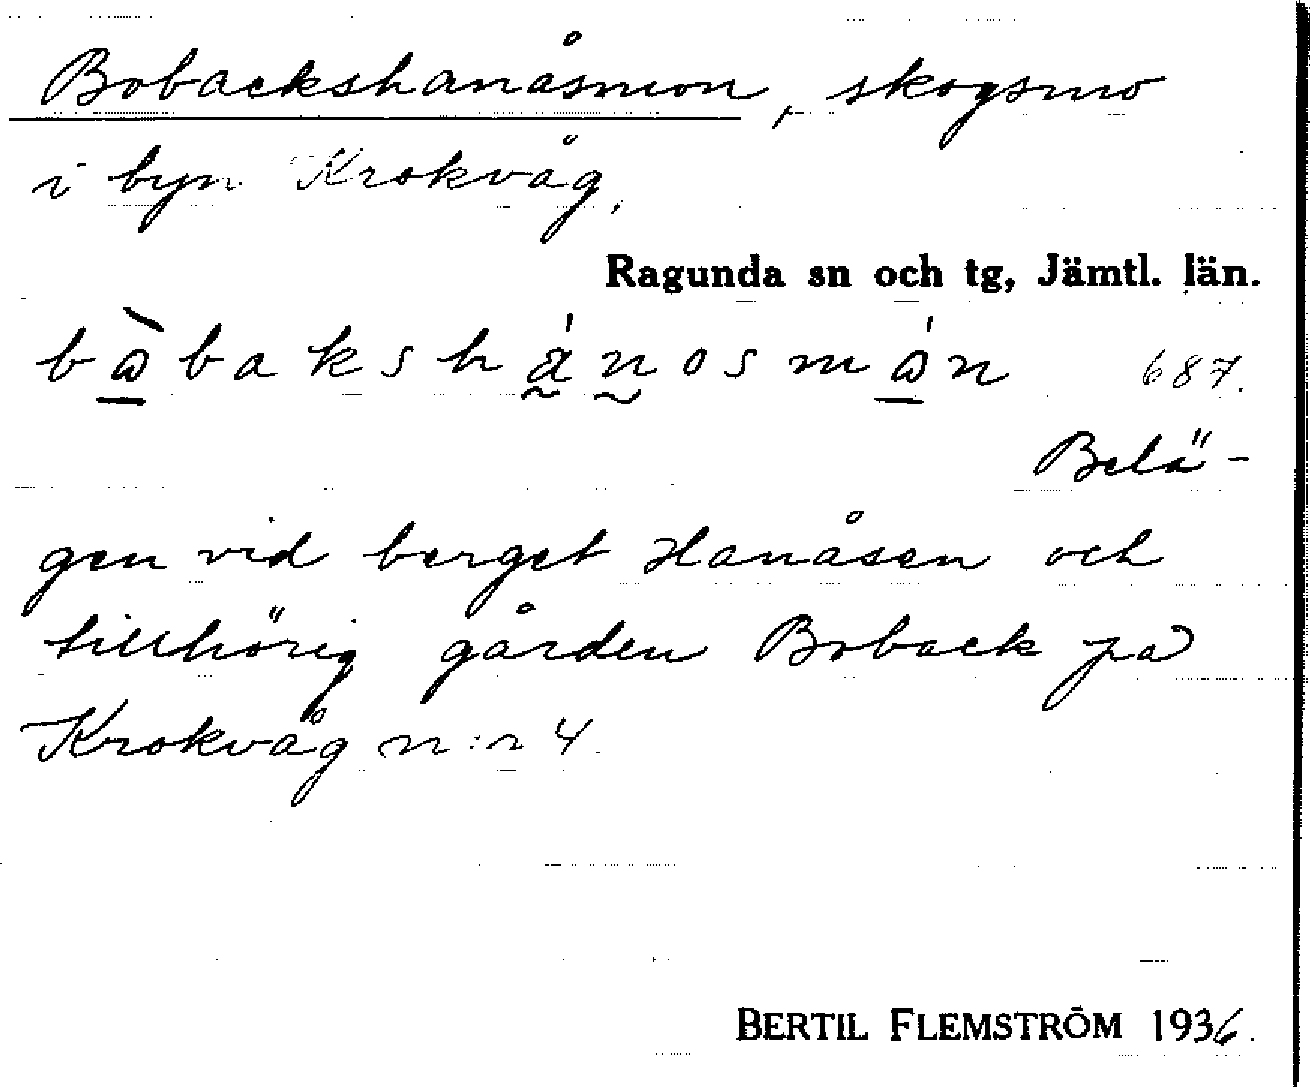 Bobackshanåsmon, skogsmo
i byn Krokvåg,
Ragunda sn och tg, Jämtl. län.
bàbakshánosmán 687.
Belä-
gen vid berget Hanåsen och
tillhörig gården Boback på
Krokvåg n:r 4.
BERTIL FLEMSTRÖM 1936.